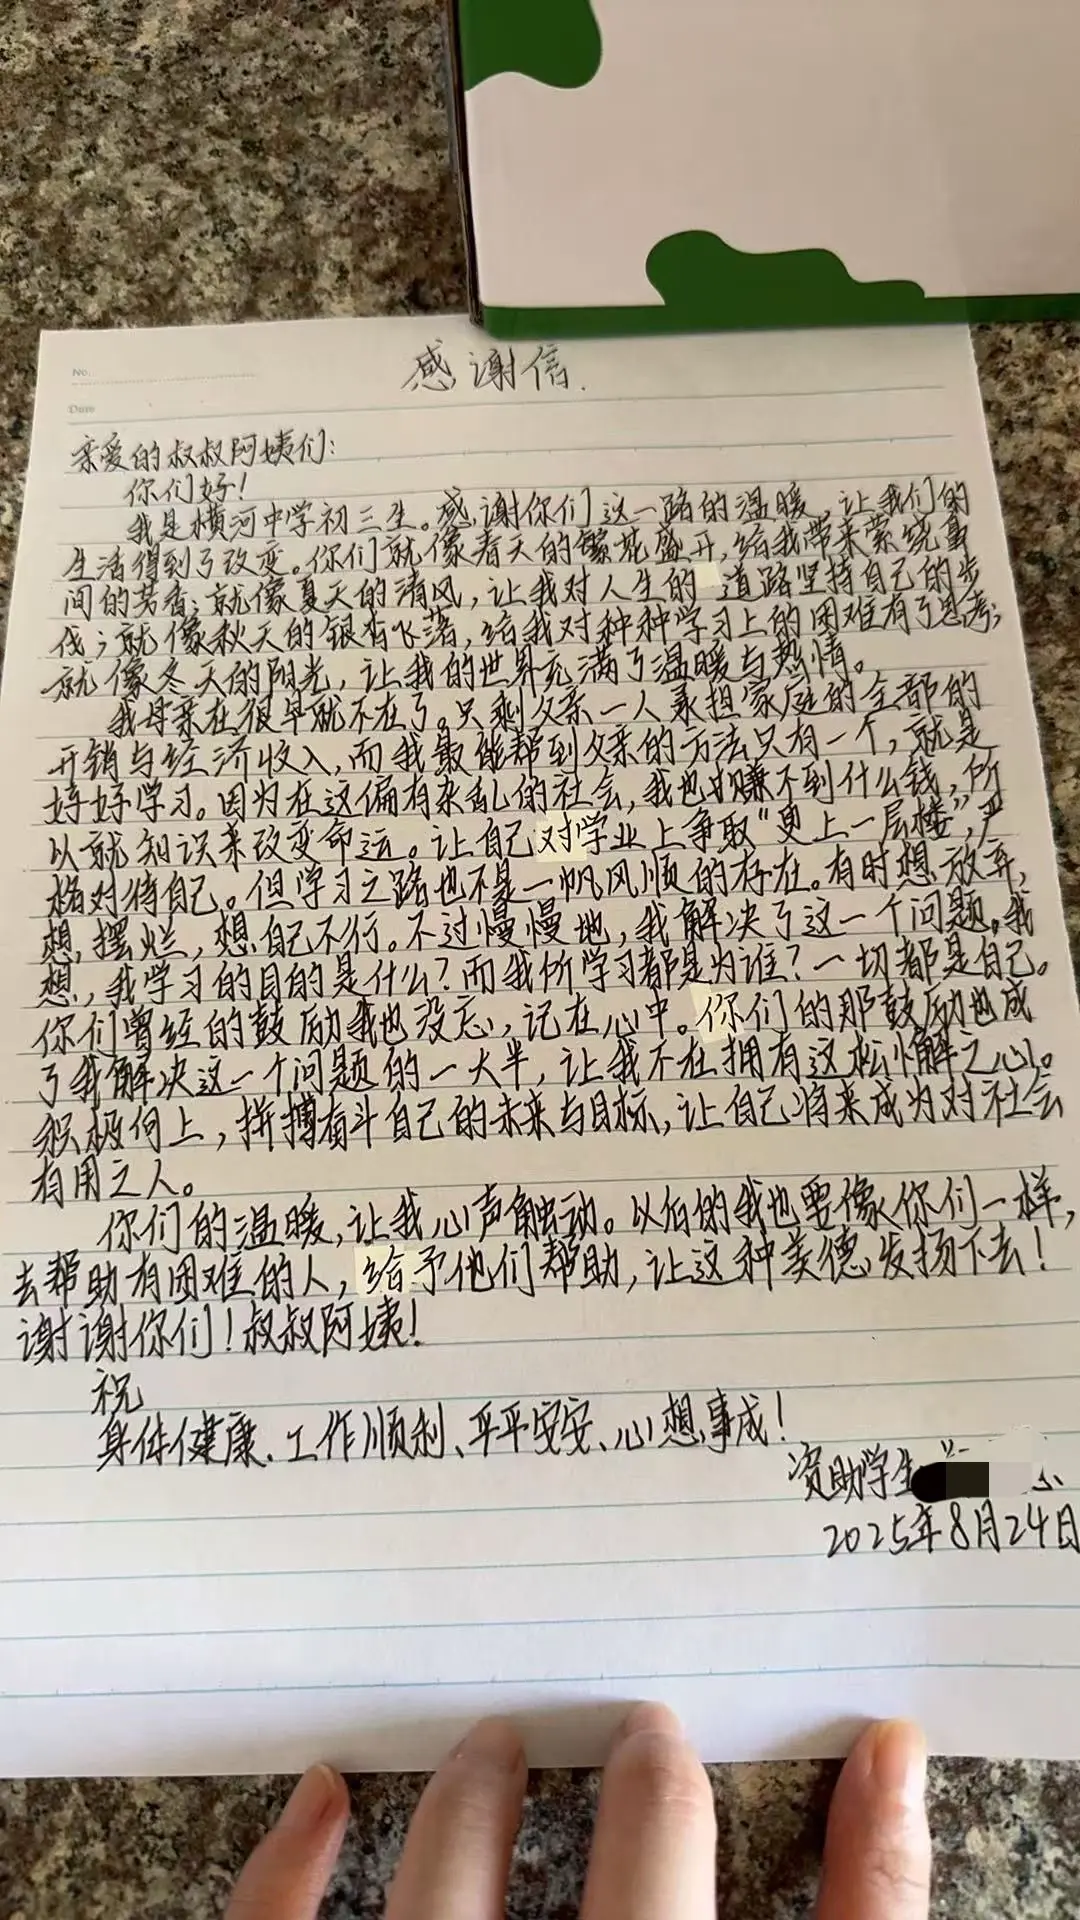 No.
感谢信.
Date
亲爱的叔叔阿姨们:
你们好!
我是横河中学初三生。感谢你们这一路的温暖,让我们的
生活得到了改变。你们就像春天的繁花盛开,给我带来萦绕鼻
间的芳香;就像夏天的清风,让我对人生的道路坚持自己的步
伐;就像秋天的银杏飞落,给我对种种学习上的困难有了思考;
就像冬天的阳光,让我的世界充满了温暖与热情。
我母亲在很早就不在了。只剩父亲一人承担家庭的全部的
开销与经济收入,而我最能帮到父亲的方法只有一个,就是
好好学习。因为在这偏有杂乱的社会,我也赚不到什么钱,所
以就知识来改变命运。让自己对学业上争取“更上一层楼”,严
格对待自己。但学习之路也不是一帆风顺的存在。有时想放弃,
想摆烂,想自己不行。不过慢慢地,我解决了这一个问题。我
想,我学习的目的是什么?而我所学习都是为谁?一切都是自己。
你们曾经的鼓励我也没忘,记在心中。你们的那鼓励也成
了我解决这一个问题的一大半,让我不在拥有这松懈之心。
积极向上,拼搏奋斗自己的未来与目标,让自己将来成为对社会
有用之人。
你们的温暖,让我心声触动。以后的我也要像你们一样,
去帮助有困难的人,给予他们帮助,让这种美德发扬下去!
谢谢你们!叔叔阿姨!
祝
身体健康、工作顺利、平平安安、心想事成!
资助学生
2025年8月24日